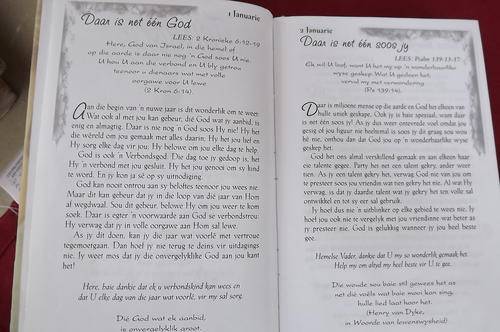 1 Januarie
Daar is net één God
LEES: 2 Kronieke 6:12-19
Here, God van Israel, in die hemel of
op die aarde is daar nie nog 'n God soos U nie.
U hou U aan die verbond en U bly getrou
teenoor u dienaars wat met volle
oorgawe voor U lewe
(2 Kron 6:14).
Aan die begin van 'n nuwe jaar is dit wonderlik om te weet:
Wat ook al met jou kan gebeur, dié God wat jy aanbid, is
enig en almagtig. Daar is nie nog 'n God soos Hy nie! Hy het
die wêreld om jou gemaak met alles daarin; Hy het jou lief en
Hy sorg elke dag vir jou; Hy belowe om jou elke dag te help.
God is ook 'n Verbondsgod. Die dag toe jy gedoop is, het
Hy 'n verbond met jou gesluit. Hy het jou genooi om sy kind
te word. En jy kon ja sê op sy uitnodiging.
God kan nooit ontrou aan sy beloftes teenoor jou wees nie.
Maar dit kan gebeur dat jy in die loop van dié jaar van Hom
af wegdwaal. Sou dit gebeur, belowe Hy om jou weer te kom
soek. Daar is egter 'n voorwaarde aan God se verbondstrou:
Hy verwag dat jy in volle oorgawe aan Hom sal lewe.
As jy dit doen, kan jy die jaar wat voorlê met vertroue
tegemoetgaan. Dan hoef jy nie terug te deins vir uitdagings
nie. Jy weet mos dat jy die onvergelyklike God aan jou kant
het!
Here, baie dankie dat ek u verbondskind kan wees en
dat U elke dag van die jaar wat voorlê, vir my sal sorg.
Dié God wat ek aanbid,
is onvergelyklik groot.
2 Januarie
Daar is net één soos jy
LEES: Psalm 139:13-17
Ek wil U loof, want U het my op 'n wonderbaarlike
wyse geskep. Wat U gedoen het,
vervul my met verwondering
(Ps 139:14).
Daar is miljoene mense op die aarde en God het elkeen van
hulle uniek geskape. Ook jy is baie spesiaal, want daar
is net één soos jy! As jy dus weer ontevrede voel omdat jou
gesig of jou figuur nie heeltemal is soos jy dit graag sou wou
hê nie, onthou dan dat God jou op 'n wonderbaarlike wyse
geskep het.
God het ons almal verskillend gemaak en aan elkeen haar
eie talente gegee. Party het net een talent gekry, ander weer
tien. As jy een talent gekry het, verwag God nie van jou om
te presteer soos jou vriendin wat tien gekry het nie. Al wat Hy
verwag, is dat jy daardie talent wat jy gekry het ten volle sal
ontwikkel en tot sy eer sal gebruik.
Jy hoef dus nie 'n uitblinker op elke gebied te wees nie. Jy
hoef jou ook nie te vergelyk met jou vriendinne wat beter as
jy presteer nie. God is gelukkig wanneer jy jou heel beste
gee.
Hemelse Vader, dankie dat U my so wonderlik gemaak het.
Help my om altyd my heel beste vir U te gee.
Die woude sou baie stil gewees het as
net dié voëls wat baie mooi kan sing,
hulle lied laat hoor het.
(Henry van Dyke,
in Woorde van lewenswysheid)